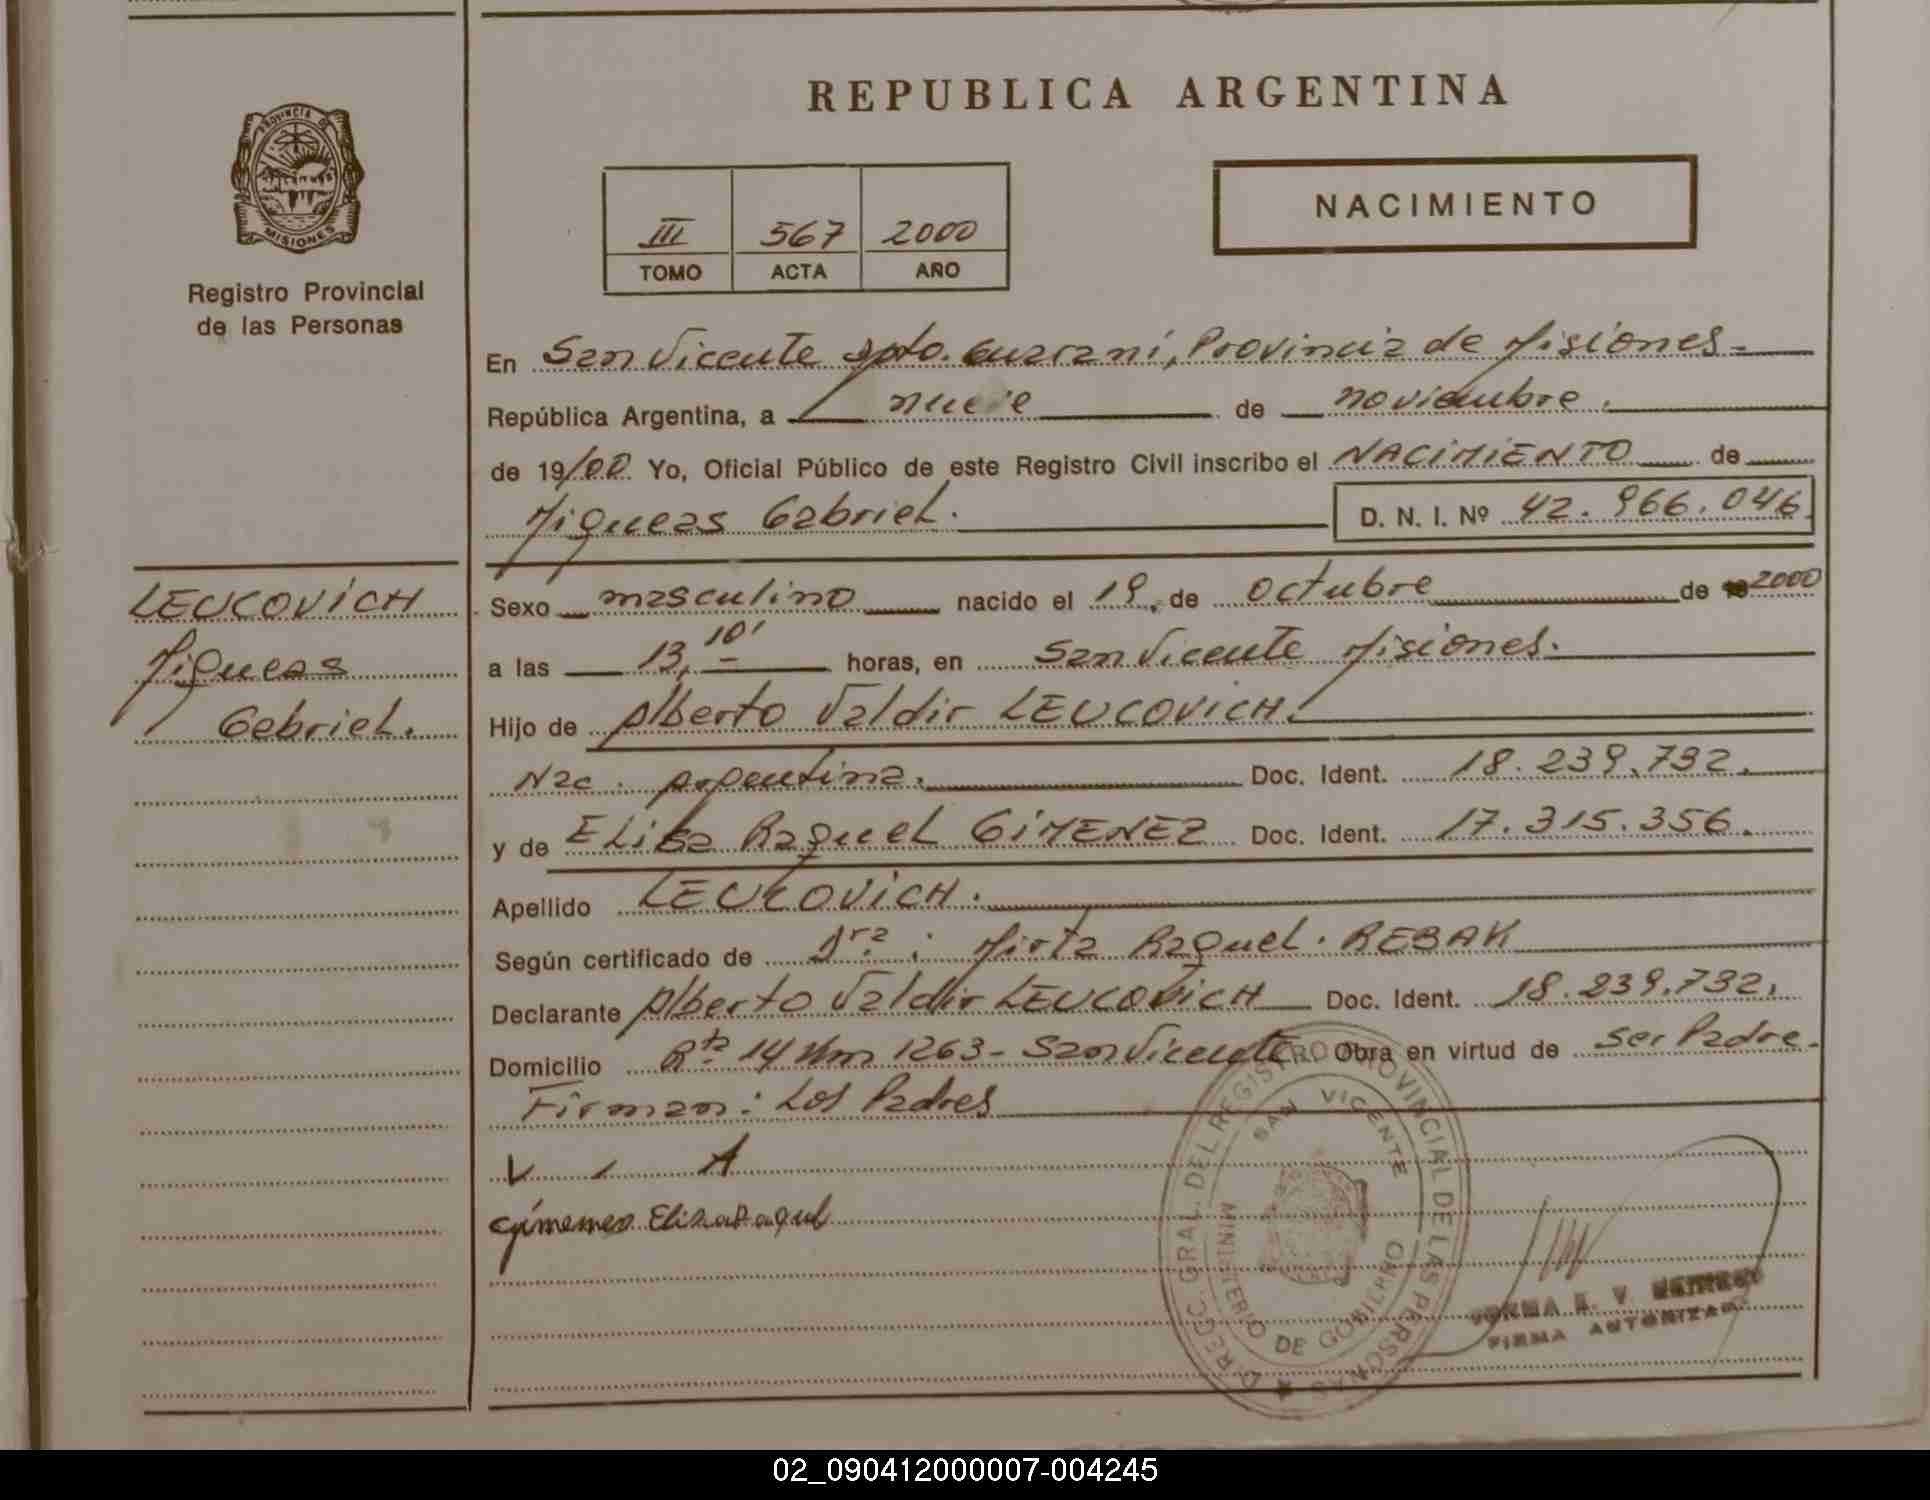 REPUBLICA ARGENTINA
PROVINCIA DE MISIONES
Registro Provincial
de las Personas
III 567 2000
TOMO ACTA AÑO
NACIMIENTO
En San Vicente Dpto. Guaraní, Provincia de Misiones
República Argentina, a nueve de noviembre.
de 19/00. Yo, Oficial Público de este Registro Civil inscribo el NACIMIENTO de
Miqueas Gabriel. D. N. I. Nº 42.966.046
LEUCOVICH
Miqueas
Gabriel.
Sexo masculino nacido el 19. de octubre de 2000
a las 13,10' horas, en San Vicente Misiones.
Hijo de Alberto Valdir LEUCOVICH.
Nac. argentina. Doc. Ident. 18.239.732.
y de Elisa Raquel GIMENEZ Doc. Ident. 17.315.356.
Apellido LEUCOVICH.
Según certificado de Dra: Mirta Raquel. REBAK
Declarante Alberto Valdir LEUCOVICH Doc. Ident. 18.239.732.
Domicilio Rta 14 Km 1263 - San Vicente Obra en virtud de ser Padre.
Firman: Los Padres
L . A
Gimenes Elisa Raquel
DIRECC. GRAL. DEL REGISTRO PROVINCIAL DE LAS PERSONAS
SAN VICENTE
MINISTERIO DE GOBIERNO
FIRMA AUTORIZADA
02_090412000007-004245